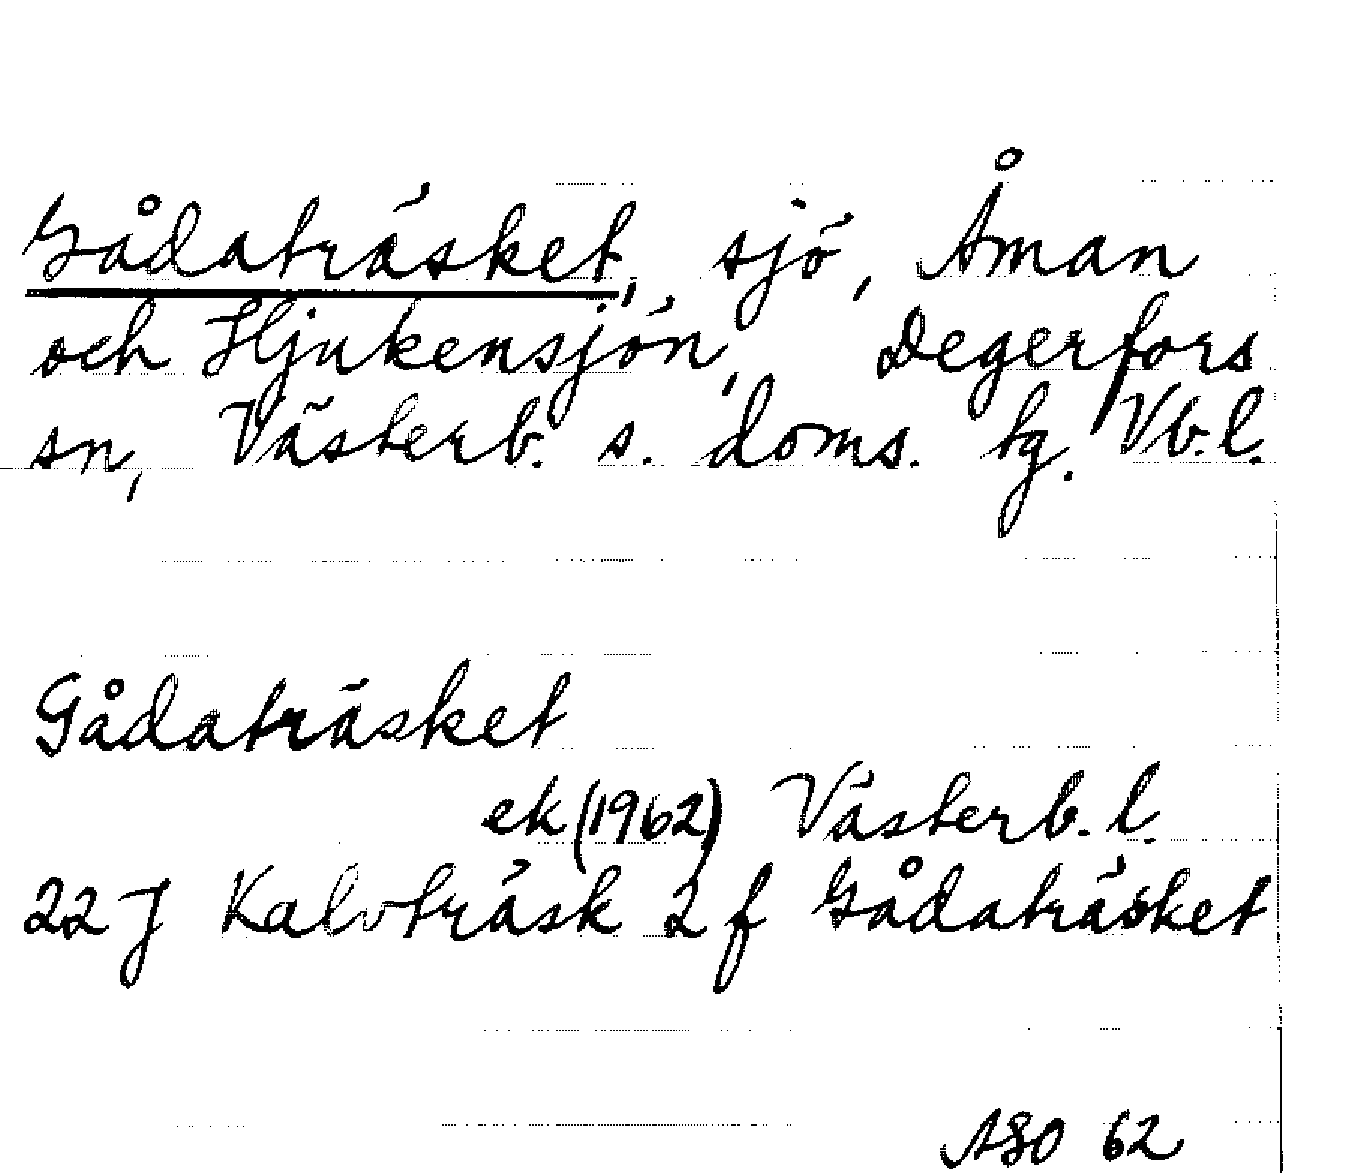 Gådaträsket, sjö, Åman
och Hjukensjön, Degerfors
sn, Västerb. s. doms. tg. Vb.l.
Gådaträsket
ek (1962) Västerb. l.
22 J Kalvträsk 2 f Gådaträsket
ASO 62